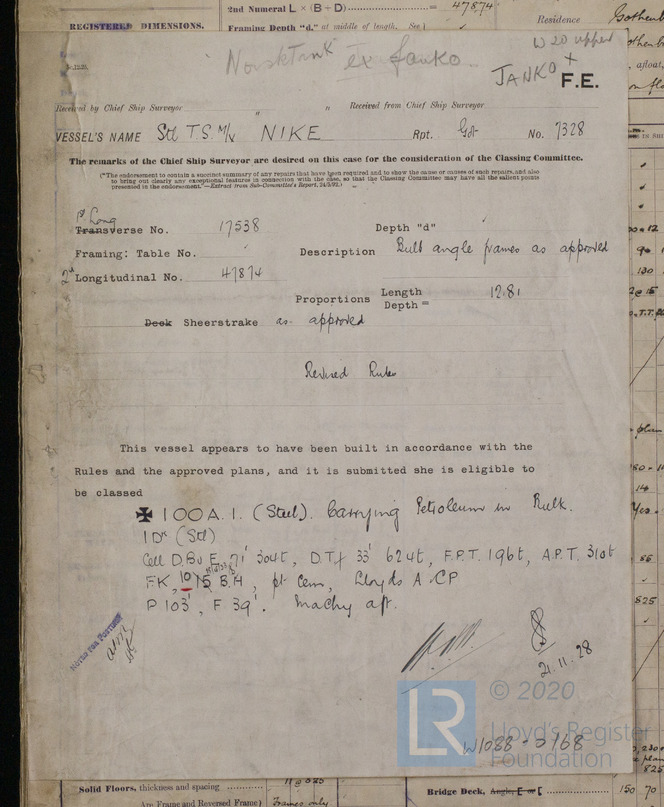 2nd Numeral L × (B + D) = 47874
REGISTERED DIMENSIONS.
Framing Depth "d," at middle of length. See
Residence
W 20 upper
Norsktank ex Janko.
JANKO +
F.E.
Received by Chief Ship Surveyor
Received from Chief Ship Surveyor
VESSEL'S NAME Stl TS M/V NIKE Rpt. Got No. 7328
The remarks of the Chief Ship Surveyor are desired on this case for the consideration of the Classing Committee.
("The endorsement to contain a succinct summary of any repairs that have been required and to show the cause or causes of such repairs, and also
to bring out clearly any exceptional features in connection with the case, so that the Classing Committee may have all the salient points
presented in the endorsement."—Extract from Sub-Committee's Report, 24/3/92.)
1st Long
Transverse No. 17538 Depth "d"
Framing: Table No. Description Bulb angle frames as approved
2nd Longitudinal No. 47874
Proportions Length Depth = 12.81
Deck Sheerstrake as approved
Revised Rules
This vessel appears to have been built in accordance with the
Rules and the approved plans, and it is submitted she is eligible to
be classed
✠ 100A.1. (Steel). Carrying Petroleum in Bulk.
1Dk (Stl)
Cell D.Bu E. 71' 304t, D.T.f 33' 624t, F.P.T. 196t, A.P.T. 310t
F.K, 10 15 B.H, pt Cem, Lloyds A.CP
P 103', F 39'. Machy aft.
NOTED FOR POSTING
21.11.28
© 2020
LR
Lloyd's Register
Foundation
W1088-0168
Solid Floors, thickness and spacing
Are Frame and Reversed Frame)
Frames only
Bridge Deck, Angle, E or [ 150 70